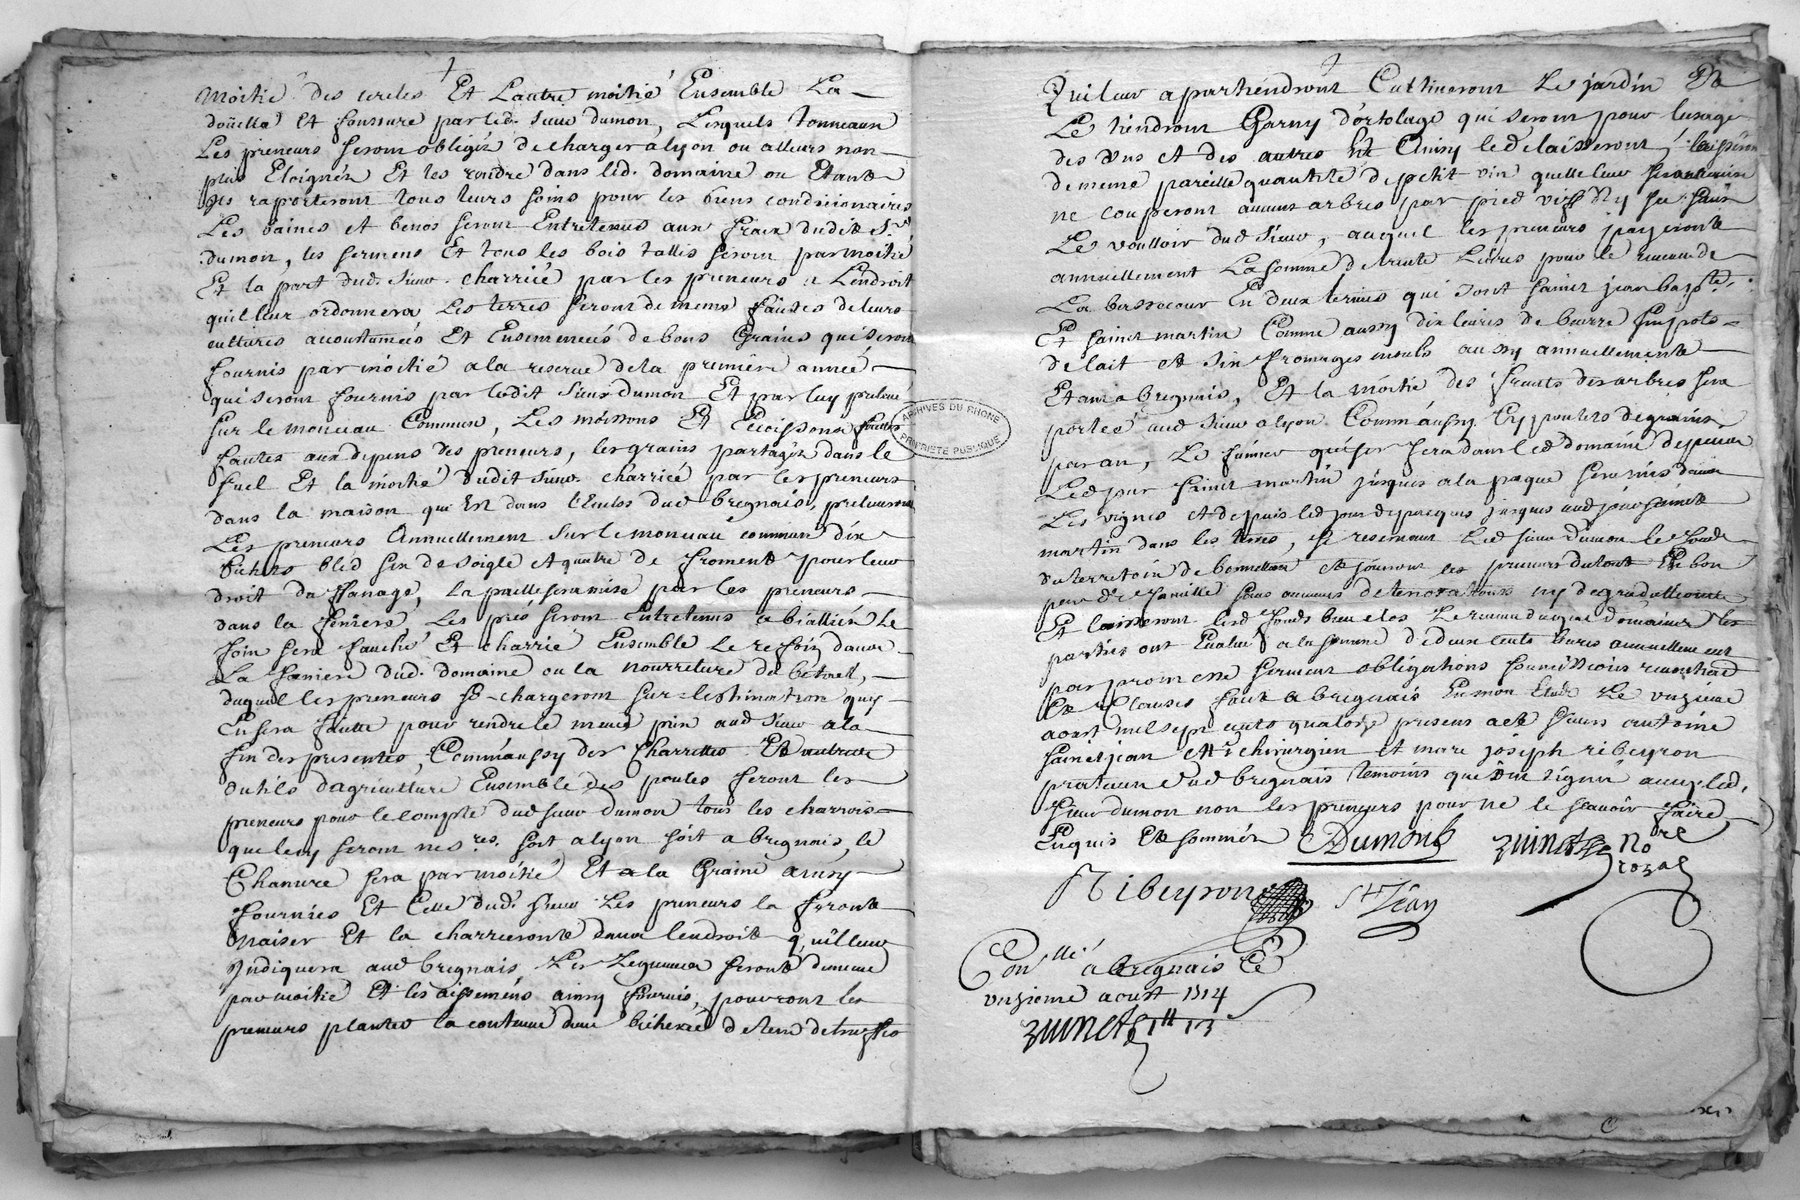 moitié des cercles Et Lautre moitié Ensemble La
doüella Et fonssure par led. sieur dumon, Lesquels tonneaux
Les preneurs seront obligéz de charger a lyon ou alleurs non
plus Eloignéz Et les rendre dans led. domaine ou Etant
ils raporteront tous leurs soins pour les biens conditionairés
Les baines et benos seront Entretenus aux fraix dudit Sr.
dumon, les sermens Et tous les bois tallis seront par moitié
Et la part dud. sieur charriée par les preneurs a Lendroit
quil leur ordonnera Les terres seront de meme faittes de leurs
cultures accoutumées Et Ensemencés de bons Grains qui seront
fournis par moitié a la reserve de la premiere année
qui seront fournis par ledit sieur dumon Et par luy preleué
sur le monceau Commun, Les moissons Et Ecoissons
faittes aux depens des preneurs, les grains partagéz dans le
suel Et la moitié dudit sieur charriée par les preneurs
dans la maison qui Est dans l'Enclos dud bregnais, preleueront
Les preneurs Annuellement sur le monceau commun dix
bichets bled six de soigle et quatre de froment pour leur
droit de la paille sera mise par les preneurs
dans la feniere Les prés seront Entretenus a biallien Le
foin sera fauché Et charrié Ensemble le refoin dans
La faniere dud. domaine ou la nourriture du betail,
duquel les preneurs se chargeront sur lestimation quy
En sera faitte pour rendre le meme prix aud sieur a la
fin des presentes, Comm'aussy des Charrettes Et autres
outils d'agriculture Ensemble des poules feront les
preneurs pour le compte dud sieur dumon tous les charrois
que luy seront nesres. soit a lyon soit a bregnais, le
Chanure sera par moitié Et la Graine aussy
fournies Et Celle dud. sieur Les preneurs la feront
naiser Et la charrieronte dans lendroit quil leur
Indiquera aud bregnais Les Legumes seront de meme
par moitié Et les aissemens ainsy fournis, pouvront les
preneurs planter la contenue dune bicherée de terre de truffes
Qui leur apartiendront Cultiueront Le jardin Et
Le tiendront Garny d'ortolage qui seront pour lusage
des uns et des autres Et Ainsy le delaisseront laisseront
de meme pareille quantité de petit vin quelle leur sera remise
ne couperont aucuns arbres par pied vifs Ny secs sans
Le voulloir dud sieur, auquel les preneurs payeronte
annuellement La somme de trente Liures pour le reuenu de
La bassecour En deux termes qui sont saint jean baptte.
Et saint martin Comme aussy dix liures de beurre six pots
de lait et six fromages aussy annuellemente
Et aud bregnais, Et la moitié des fruits des arbres sera
portée aud sieur a lyon Comm'aussy poulets de grains
par an, Le fumier qui se fera dans led domaine depuis
Led jour saint martin jusques a la paque sera mis dans
Les vignes et depuis led jour de paques jusques aud jour saint
martin dans les terres, se reservant Led sieur dumon le fonds
du territoire de et jouiront les preneurs du tout En bon
pere de famille sans aucunes deteriorations ny degradations
Et laisseront lesd fonds bien clos Le reuenu duquel domaine les
parties ont Eualué a la somme de deux cents liures annuellement
par promesse serment obligations soumissions renontiations
Et Clauses fait a bregnais En mon Etude Le vnzieme
aoust mil sept cents quatorze presens a ce sieurs antoine
saintjean mtre chirurgien Et marc joseph ribeyron
praticien dud bregnais temoins que Ont signé auec led.
sieur dumon non les preneurs pour ne le scauoir faire
Enquis Et sommés
Dumont
Nore
royal
Ribeyron
St Jean
Conllé a bregnais le
vnzieme aoust 1714
ARCHIVES DU RHONE
PROPRIETE PUBLIQUE